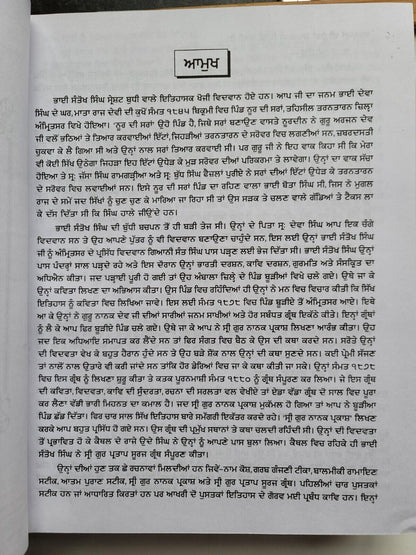 ਆਮੁਖ
ਭਾਈ ਸੰਤੋਖ ਸਿੰਘ ਸ੍ਰੇਸ਼ਟ ਬੁਧੀ ਵਾਲੇ ਇਤਿਹਾਸਕ ਖੋਜੀ ਵਿਦਵਾਨ ਹੋਏ ਹਨ। ਆਪ ਜੀ ਦਾ ਜਨਮ ਭਾਈ ਦੇਵਾ
ਸਿੰਘ ਦੇ ਘਰ, ਮਾਤਾ ਰਾਜ ਦੇਵੀ ਦੀ ਕੁਖੋਂ ਸੰਮਤ ੧੮੪੫ ਬਿਕ੍ਰਮੀ ਵਿਚ ਪਿੰਡ ਨੂਰ ਦੀ ਸਰਾਂ, ਤਹਿਸੀਲ ਤਰਨਤਾਰਨ ਜ਼ਿਲ੍ਹਾ
ਅੰਮ੍ਰਿਤਸਰ ਵਿਖੇ ਹੋਇਆ। 'ਨੂਰ ਦੀ ਸਰਾਂ' ਉਹ ਪਿੰਡ ਹੈ, ਜਿਥੇ ਸਰਾਂ ਬਣਾਉਣ ਵਾਸਤੇ ਨੂਰਦੀਨ ਨੇ ਗੁਰੂ ਅਰਜਨ ਦੇਵ
ਜੀ ਵਲੋਂ ਭਠਿਆਂ ਤੇ ਤਿਆਰ ਕਰਵਾਈਆਂ ਇੱਟਾਂ,ਜਿਹੜੀਆਂ ਤਰਨਤਾਰਨ ਦੇ ਸਰੋਵਰ ਵਿਚ ਲਗਣੀਆਂ ਸਨ, ਜ਼ਬਰਦਸਤੀ
ਚੁਕਵਾ ਕੇ ਲੈ ਗਿਆ ਸੀ ਅਤੇ ਉਨ੍ਹਾਂ ਨਾਲ ਸਰਾਂ ਤਿਆਰ ਕਰਵਾਈ ਸੀ। ਪਰ ਗੁਰੂ ਜੀ ਨੇ ਇਹ ਵਾਕ ਕਿਹਾ ਸੀ ਕਿ ਮੇਰਾ
ਵੀ ਕੋਈ ਸਿੱਖ ਉਠੇਗਾ ਜਿਹੜਾ ਇਹ ਇੱਟਾਂ ਉਧੇੜ ਕੇ ਮੁੜ ਸਰੋਵਰ ਦੀਆਂ ਪਰਿਕਰਮਾ ਤੇ ਲਾਵੇਗਾ। ਉਨ੍ਹਾਂ ਦਾ ਵਾਕ ਸੱਚਾ
ਹੋਇਆ ਤੇ ਸ੍ਰ: ਜੱਸਾ ਸਿੰਘ ਰਾਮਗੜ੍ਹੀਆ ਅਤੇ ਸ੍ਰ: ਬੁੱਧ ਸਿੰਘ ਫੈਜਲਾਂ ਪੁਰੀਏ ਨੇ ਸਰਾਂ ਦੀਆਂ ਇੱਟਾਂ ਉਧੇੜ ਕੇ ਤਰਨਤਾਰਨ
ਦੇ ਸਰੋਵਰ ਵਿਚ ਲਵਾਈਆਂ ਸਨ। ਇਸੇ ਨੂਰ ਦੀ ਸਰਾਂ ਪਿੰਡ ਦਾ ਰਹਿਣ ਵਾਲਾ ਭਾਈ ਬੋਤਾ ਸਿੰਘ ਸੀ, ਜਿਸ ਨੇ ਮੁਗਲ
ਰਾਜ ਦੇ ਸਮੇਂ ਜਦ ਸਿੱਖਾਂ ਨੂੰ ਚੁਣ ਚੁਣ ਕੇ ਮਾਰਿਆ ਜਾ ਰਿਹਾ ਸੀ ਤਾਂ ਉਸ ਸੜਕ ਤੇ ਚਲਣ ਵਾਲੇ ਗੱਡਿਆਂ ਤੇ ਟੈਕਸ ਲਾ
ਕੇ ਦੱਸ ਦਿੱਤਾ ਸੀ ਕਿ ਸਿੰਘ ਹਾਲੇ ਜੀਉਂਦੇ ਹਨ।
ਭਾਈ ਸੰਤੋਖ ਸਿੰਘ ਦੀ ਬੁੱਧੀ ਬਚਪਨ ਤੋਂ ਹੀ ਬੜੀ ਤੇਜ ਸੀ। ਉਨ੍ਹਾਂ ਦੇ ਪਿਤਾ ਸ੍ਰ: ਦੇਵਾ ਸਿੰਘ ਆਪ ਇਕ ਚੰਗੇ
ਵਿਦਵਾਨ ਸਨ ਤੇ ਉਹ ਆਪਣੇ ਪੁੱਤਰ ਨੂੰ ਵੀ ਵਿਦਵਾਨ ਬਣਾਉਣਾ ਚਾਹੁੰਦੇ ਸਨ, ਇਸ ਲਈ ਉਨ੍ਹਾਂ ਭਾਈ ਸੰਤੋਖ ਸਿੰਘ
ਜੀ ਨੂੰ ਅੰਮ੍ਰਿਤਸਰ ਦੇ ਪ੍ਰਸਿੱਧ ਵਿਦਵਾਨ ਗਿਆਨੀ ਸੰਤ ਸਿੰਘ ਪਾਸ ਪੜ੍ਹਣ ਲਈ ਭੇਜ ਦਿੱਤਾ ਸੀ। ਭਾਈ ਸੰਤੋਖ ਸਿੰਘ ਉਨ੍ਹਾਂ
ਪਾਸ ਪੰਦਰ੍ਹਾਂ ਸਾਲ ਪੜ੍ਹਦੇ ਰਹੇ ਅਤੇ ਇਸ ਦੌਰਾਨ ਉਨ੍ਹਾਂ ਭਾਰਤੀ ਦਰਸ਼ਨ, ਕਾਵਿ ਦਰਸ਼ਨ, ਗੁਰਮਤਿ ਅਤੇ ਸੰਸਕ੍ਰਿਤ ਦਾ
ਅਧਿਐਨ ਕੀਤਾ। ਜਦ ਪੜ੍ਹਾਈ ਪੂਰੀ ਹੋ ਗਈ ਤਾਂ ਉਹ ਅੰਬਾਲਾ ਜ਼ਿਲ੍ਹੇ ਦੇ ਪਿੰਡ ਬੂੜੀਆਂ ਵਿਖੇ ਚਲੇ ਗਏ। ਉਥੇ ਜਾ ਕੇ
ਉਨ੍ਹਾਂ ਕਵਿਤਾ ਲਿਖਣ ਦਾ ਅਭਿਆਸ ਕੀਤਾ। ਉਸ ਪਿੰਡ ਵਿਚ ਰਹਿੰਦਿਆਂ ਹੀ ਉਨ੍ਹਾਂ ਨੇ ਮਨ ਵਿਚ ਵਿਚਾਰ ਕੀਤੀ ਕਿ ਸਿੱਖ
ਇਤਿਹਾਸ ਨੂੰ ਕਵਿਤਾ ਵਿਚ ਲਿਖਿਆ ਜਾਵੇ। ਇਸ ਲਈ ਸੰਮਤ ੧੮੭੬ ਵਿਚ ਪਿੰਡ ਬੂੜੀਏ ਤੋਂ ਅੰਮ੍ਰਿਤਸਰ ਆਏ। ਇਥੇ
ਆ ਕੇ ਉਨ੍ਹਾਂ ਨੇ ਗੁਰੂ ਨਾਨਕ ਦੇਵ ਜੀ ਦੀਆਂ ਸਾਰੀਆਂ ਜਨਮ ਸਾਖੀਆਂ ਅਤੇ ਹੋਰ ਸਬੰਧਤ ਗ੍ਰੰਥ ਇਕੱਠੇ ਕੀਤੇ। ਇਨ੍ਹਾਂ ਗ੍ਰੰਥਾਂ
ਨੂੰ ਲੈ ਕੇ ਆਪ ਫਿਰ ਬੂੜੀਏ ਪਿੰਡ ਚਲੇ ਗਏ। ਉਥੇ ਜਾ ਕੇ ਆਪ ਨੇ ਸ੍ਰੀ ਗੁਰ ਨਾਨਕ ਪ੍ਰਕਾਸ਼ ਲਿਖਣਾ ਆਰੰਭ ਕੀਤਾ। ਉਹ
ਜਦ ਇਕ ਅਧਿਆਇ ਸਮਾਪਤ ਕਰ ਲੈਂਦੇ ਸਨ ਤਾਂ ਫਿਰ ਸੰਗਤ ਵਿਚ ਬੈਠ ਕੇ ਉਸ ਦੀ ਕਥਾ ਕਰਦੇ ਸਨ। ਸਰੋਤੇ ਉਨ੍ਹਾਂ
ਦੀ ਵਿਦਵਤਾ ਵੇਖ ਕੇ ਬਹੁਤ ਹੈਰਾਨ ਹੁੰਦੇ ਸਨ ਤੇ ਉਹ ਬੜੇ ਸ਼ੌਕ ਨਾਲ ਉਨ੍ਹਾਂ ਦੀ ਕਥਾ ਸੁਣਦੇ ਸਨ। ਕਈ ਪ੍ਰੇਮੀ ਸੱਜਣ
ਤਾਂ ਨਾਲੋਂ ਨਾਲ ਉਤਾਰੇ ਵੀ ਕਰੀ ਜਾਂਦੇ ਸਨ ਤਾਂਕਿ ਹੋਰ ਡੇਰਿਆਂ ਵਿਚ ਜਾ ਕੇ ਕਥਾ ਕੀਤੀ ਜਾ ਸਕੇ। ਉਨ੍ਹਾਂ ਸੰਮਤ ੧੮੭੮
ਵਿਚ ਇਸ ਗ੍ਰੰਥ ਨੂੰ ਲਿਖਣਾ ਸ਼ੁਰੂ ਕੀਤਾ ਤੇ ਕਤਕ ਪੂਰਨਮਾਸ਼ੀ ਸੰਮਤ ੧੮੮੦ ਨੂੰ ਗ੍ਰੰਥ ਸੰਪੂਰਣ ਕਰ ਲਿਆ। ਜੇ ਇਸ ਗ੍ਰੰਥ
ਦੀ ਕਵਿਤਾ, ਵਿਦਵਤਾ, ਕਾਵਿ ਦੀ ਸੁੰਦਰਤਾ, ਰਚਨਾ ਦੀ ਸਰਲਤਾ ਵਲ ਵੇਖੀਏ ਤਾਂ ਏਡਾ ਵੱਡਾ ਗ੍ਰੰਥ ਦੋ ਸਾਲ ਵਿਚ ਪੂਰਾ
ਕਰ ਲੈਣਾ ਵੱਡੀ ਭਾਰੀ ਮਿਹਨਤ ਦਾ ਕਮਾਲ ਹੈ। ਜਦ ਸ੍ਰੀ ਗੁਰ ਨਾਨਕ ਪ੍ਰਕਾਸ਼ ਮੁਕੰਮਲ ਹੋ ਗਿਆ ਤਾਂ ਆਪ ਨੇ ਬੂੜੀਆ
ਪਿੰਡ ਛੱਡ ਦਿੱਤਾ। ਫਿਰ ਚਾਰ ਸਾਲ ਸਿੱਖ ਇਤਿਹਾਸ ਬਾਰੇ ਸਮੱਗਰੀ ਇਕੱਤਰ ਕਰਦੇ ਰਹੇ। 'ਸ੍ਰੀ ਗੁਰ ਨਾਨਕ ਪ੍ਰਕਾਸ਼' ਲਿਖਣ
ਕਰਕੇ ਆਪ ਬਹੁਤ ਪ੍ਰਸਿੱਧ ਹੋ ਗਏ ਸਨ। ਉਸ ਗ੍ਰੰਥ ਦੀ ਪ੍ਰਮੁੱਖ ਸਥਾਨਾਂ ਤੇ ਕਥਾ ਚਲਦੀ ਰਹਿੰਦੀ ਸੀ। ਉਨ੍ਹਾਂ ਦੀ ਵਿਦਵਤਾ
ਤੋਂ ਪ੍ਰਭਾਵਿਤ ਹੋ ਕੇ ਕੈਥਲ ਦੇ ਰਾਜੇ ਉਦੇ ਸਿੰਘ ਨੇ ਉਨ੍ਹਾਂ ਨੂੰ ਆਪਣੇ ਪਾਸ ਬੁਲਾ ਲਿਆ। ਕੈਥਲ ਵਿਚ ਰਹਿਕੇ ਹੀ ਭਾਈ
ਸੰਤੋਖ ਸਿੰਘ ਨੇ ਸ੍ਰੀ ਗੁਰ ਪ੍ਰਤਾਪ ਸੂਰਜ ਗ੍ਰੰਥ ਸੰਪੂਰਣ ਕੀਤਾ।
ਉਨ੍ਹਾਂ ਦੀਆਂ ਹੁਣ ਤਕ ਛੇ ਰਚਨਾਵਾਂ ਮਿਲਦੀਆਂ ਹਨ ਜਿਵੇਂ-ਨਾਮ ਕੋਸ਼, ਗਰਬ ਗੰਜਣੀ ਟੀਕਾ, ਬਾਲਮੀਕੀ ਰਾਮਾਇਣ
ਸਟੀਕ, ਆਤਮ ਪੁਰਾਣ ਸਟੀਕ, ਸ੍ਰੀ ਗੁਰ ਨਾਨਕ ਪ੍ਰਕਾਸ਼ ਅਤੇ ਸ੍ਰੀ ਗੁਰ ਪ੍ਰਤਾਪ ਸੂਰਜ ਗ੍ਰੰਥ। ਪਹਿਲੀਆਂ ਚਾਰ ਪੁਸਤਕਾਂ
ਸਟੀਕ ਹਨ ਜਾਂ ਆਧਾਰਿਤ ਕਿਰਤਾਂ ਹਨ ਪਰ ਆਖਰੀ ਦੋ ਪੁਸਤਕਾਂ ਇਤਿਹਾਸ ਦੇ ਗੌਰਵ ਮਈ ਪ੍ਰਬੰਧ ਕਾਵਿ ਹਨ। ਇਨ੍ਹਾਂ